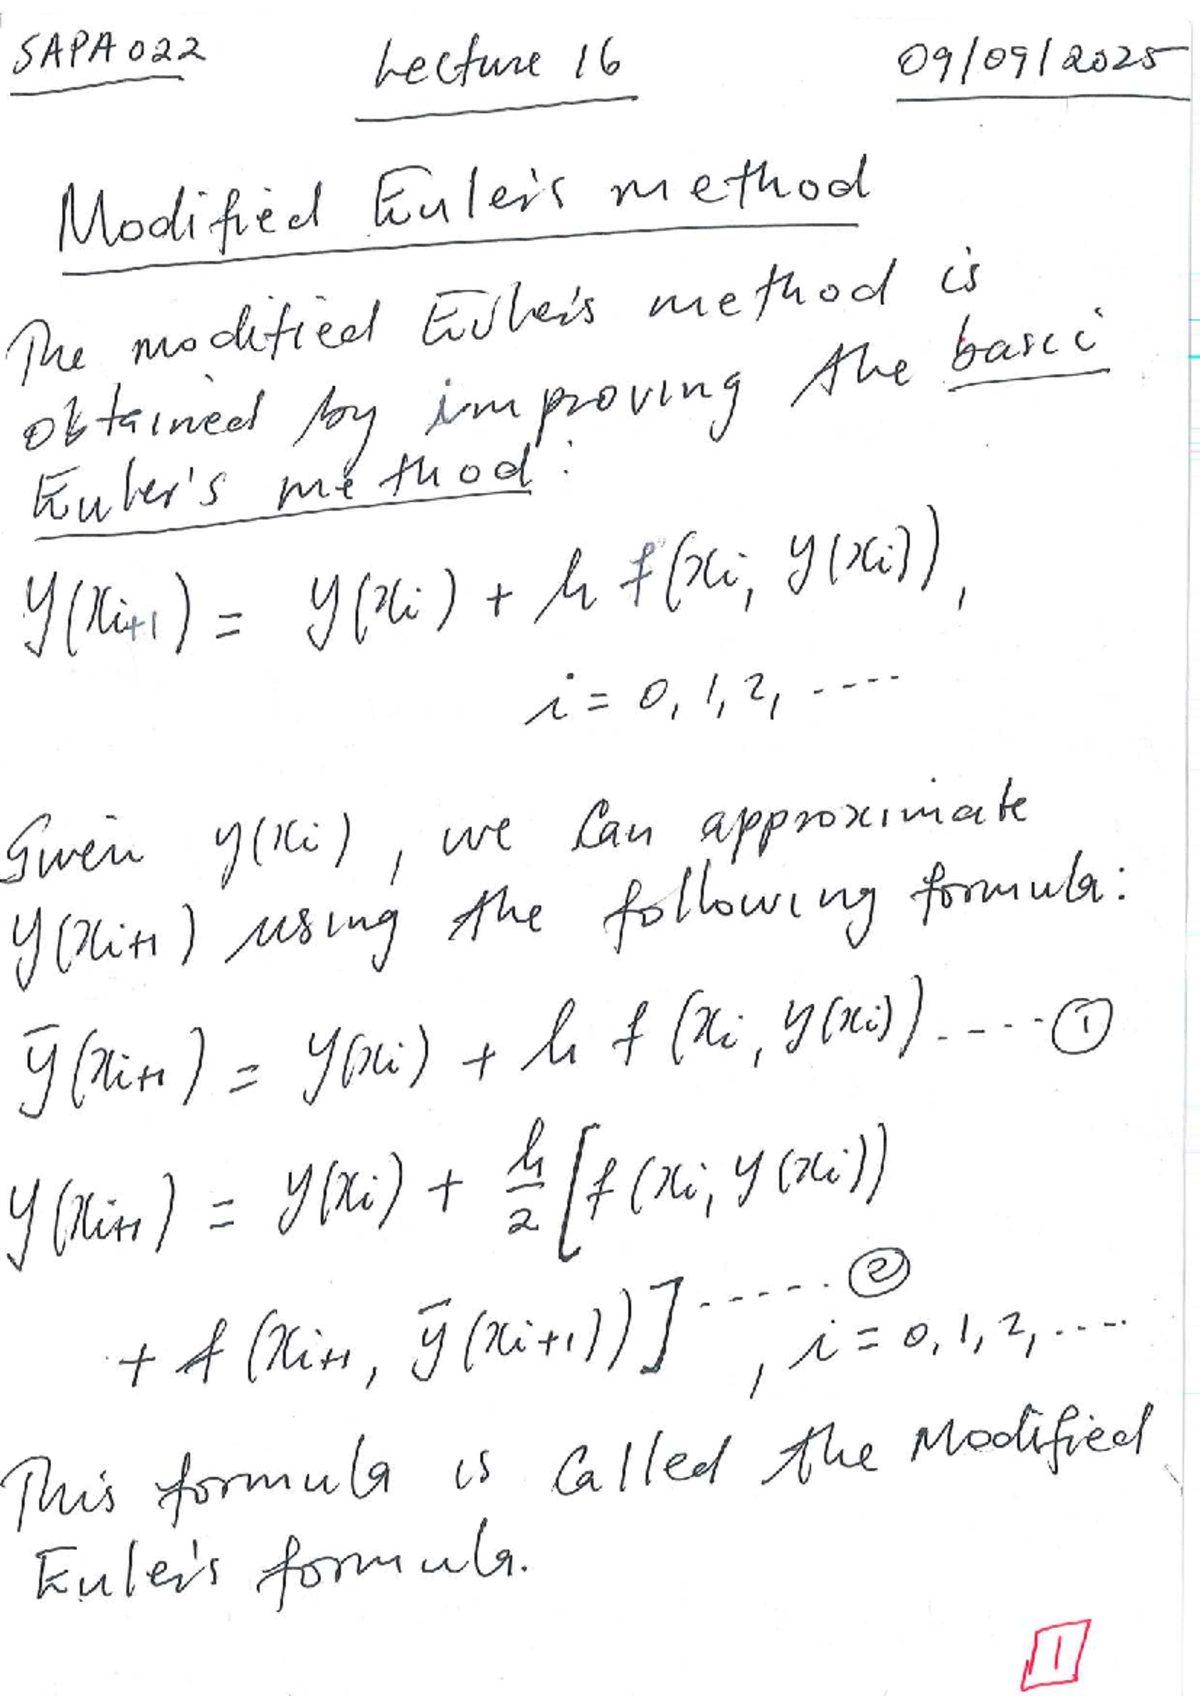 SAPA022 Lecture 16 09/09/2025
Modified Euler's method
The modified Euler's method is
obtained by improving the basic
Euler's method:
y(xi+1) = y(xi) + h f(xi, y(xi)),
i = 0, 1, 2, ....
Given y(xi), we can approximate
y(xi+1) using the following formula:
ȳ(xi+1) = y(xi) + h f(xi, y(xi)) ---- ①
y(xi+1) = y(xi) + h/2 [f(xi, y(xi))
+ f(xi+1, ȳ(xi+1))] ------ ②
, i = 0, 1, 2, ....
This formula is called the Modified
Euler's formula.
1